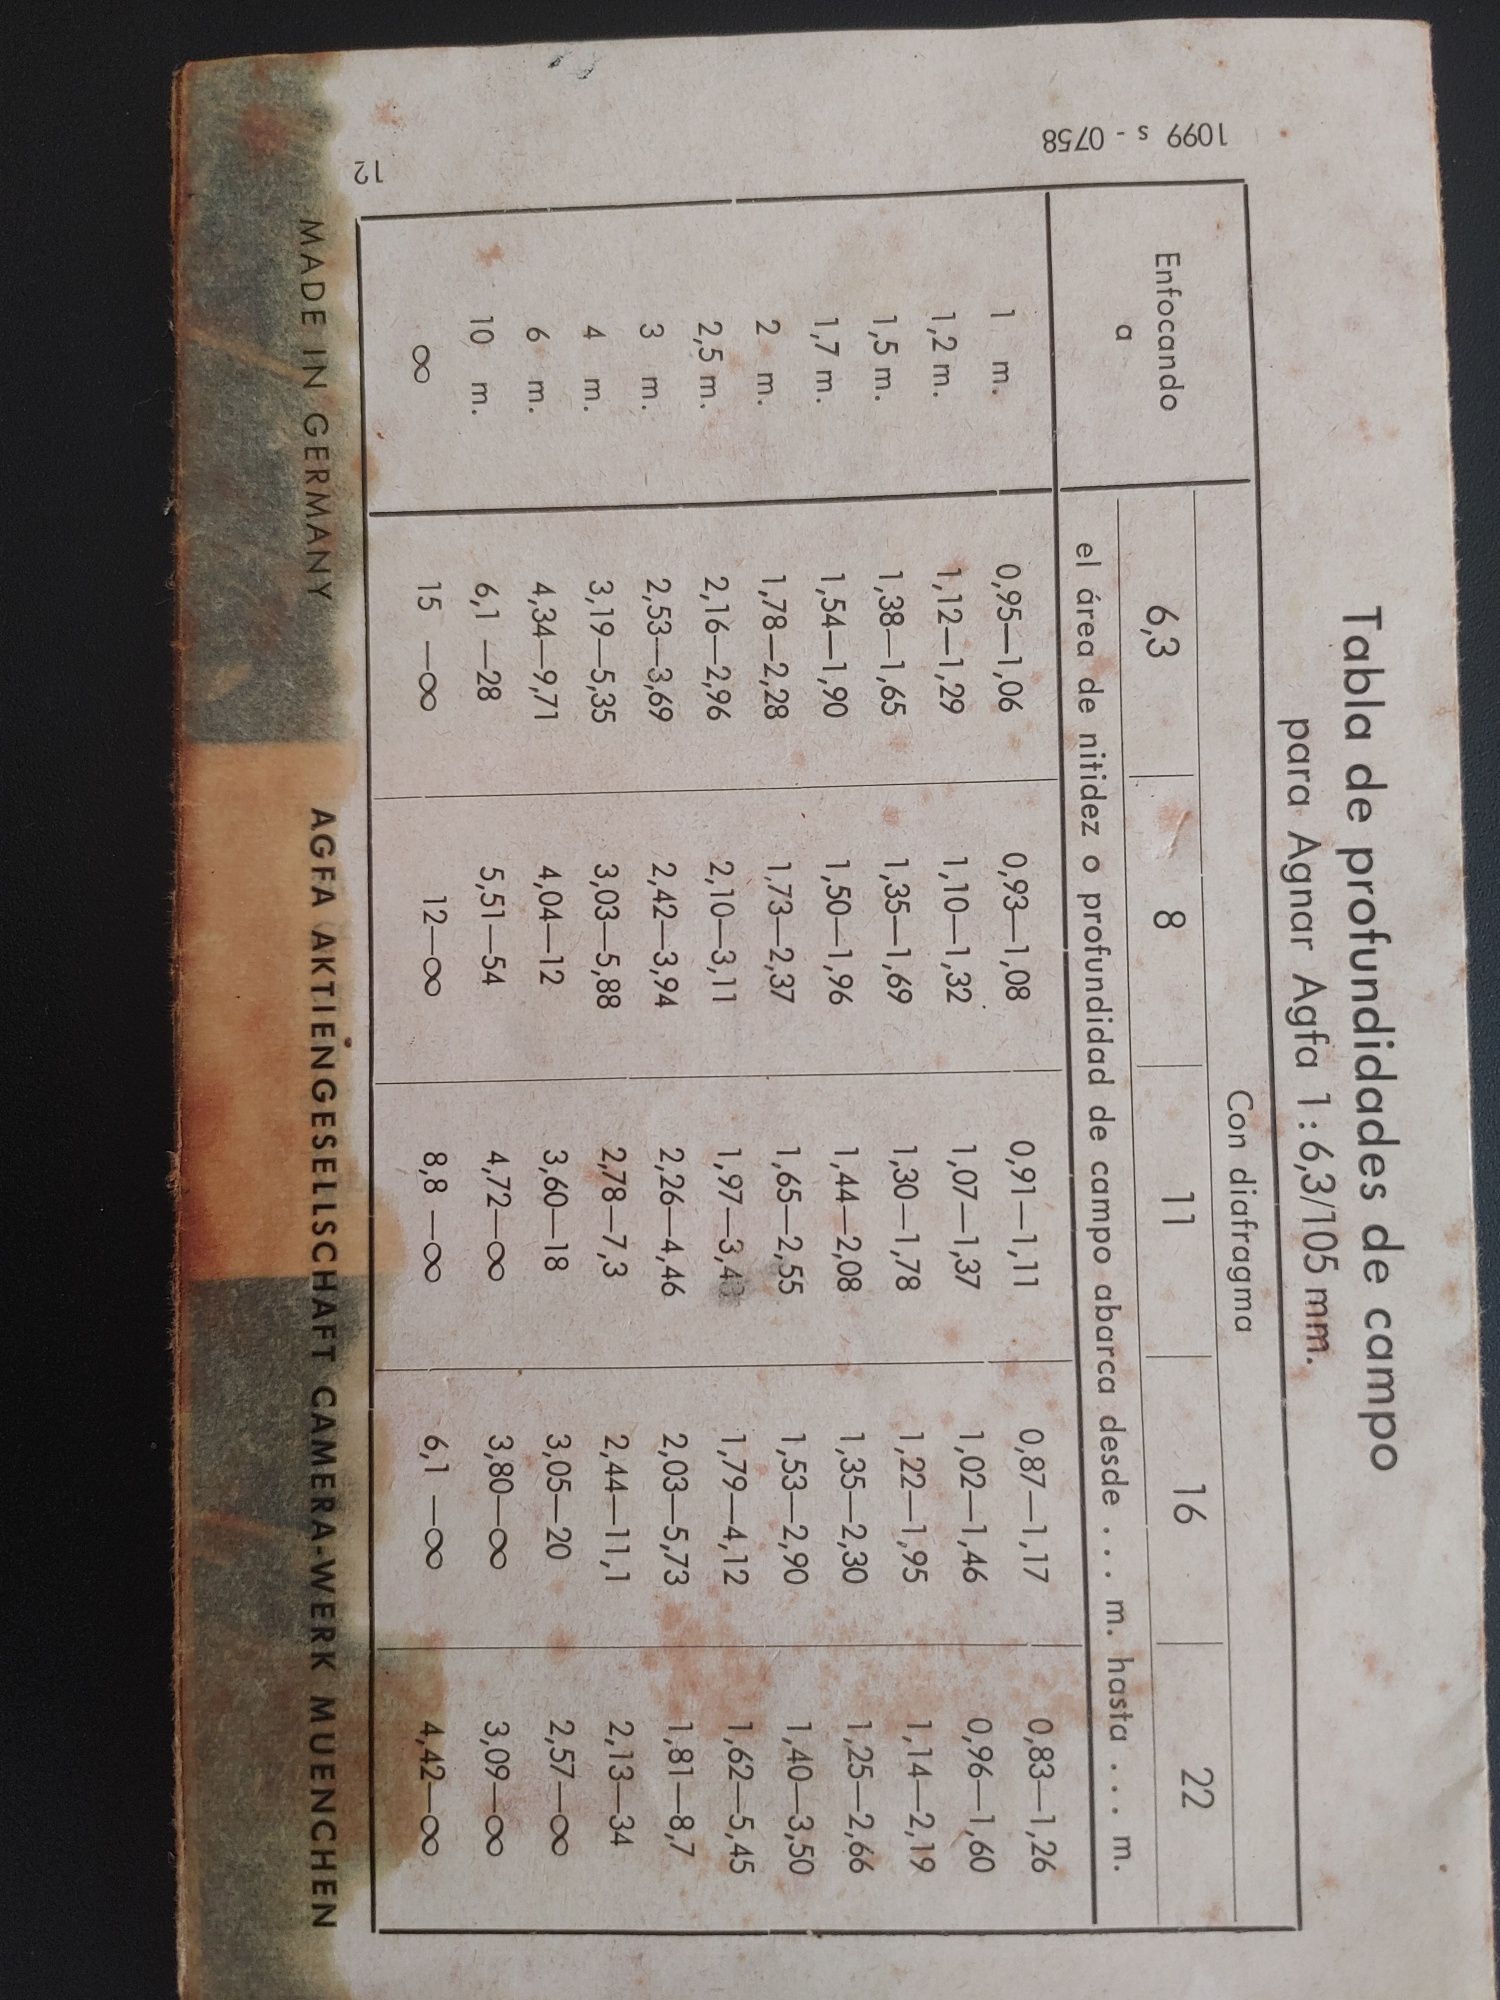 Tabla de profundidades de campo
para Agnar Agfa 1 : 6,3/105 mm.
Enfocando a
Con diafragma
6,3 8 11 16 22
el área de nitidez o profundidad de campo abarca desde . . . m. hasta . . . m.
1 m. 0,95—1,06 0,93—1,08 0,91—1,11 0,87—1,17 0,83—1,26
1,2 m. 1,12—1,29 1,10—1,32 1,07—1,37 1,02—1,46 0,96—1,60
1,5 m. 1,38—1,65 1,35—1,69 1,30—1,78 1,22—1,95 1,14—2,19
1,7 m. 1,54—1,90 1,50—1,96 1,44—2,08 1,35—2,30 1,25—2,66
2 m. 1,78—2,28 1,73—2,37 1,65—2,55 1,53—2,90 1,40—3,50
2,5 m. 2,16—2,96 2,10—3,11 1,79—4,12 1,62—5,45
3 m. 2,53—3,69 2,42—3,94 2,26—4,46 2,03—5,73 1,81—8,7
4 m. 3,19—5,35 3,03—5,88 2,78—7,3 2,44—11,1 2,13—34
6 m. 4,34—9,71 4,04—12 3,60—18 3,05—20 2,57—∞
10 m. 6,1 —28 5,51—54 4,72—∞ 3,80—∞ 3,09—∞
∞ 15 —∞ 12—∞ 8,8 —∞ 6,1 —∞ 4,42—∞
MADE IN GERMANY AGFA AKTIENGESELLSCHAFT CAMERA-WERK MUENCHEN
12
1099 s - 0758